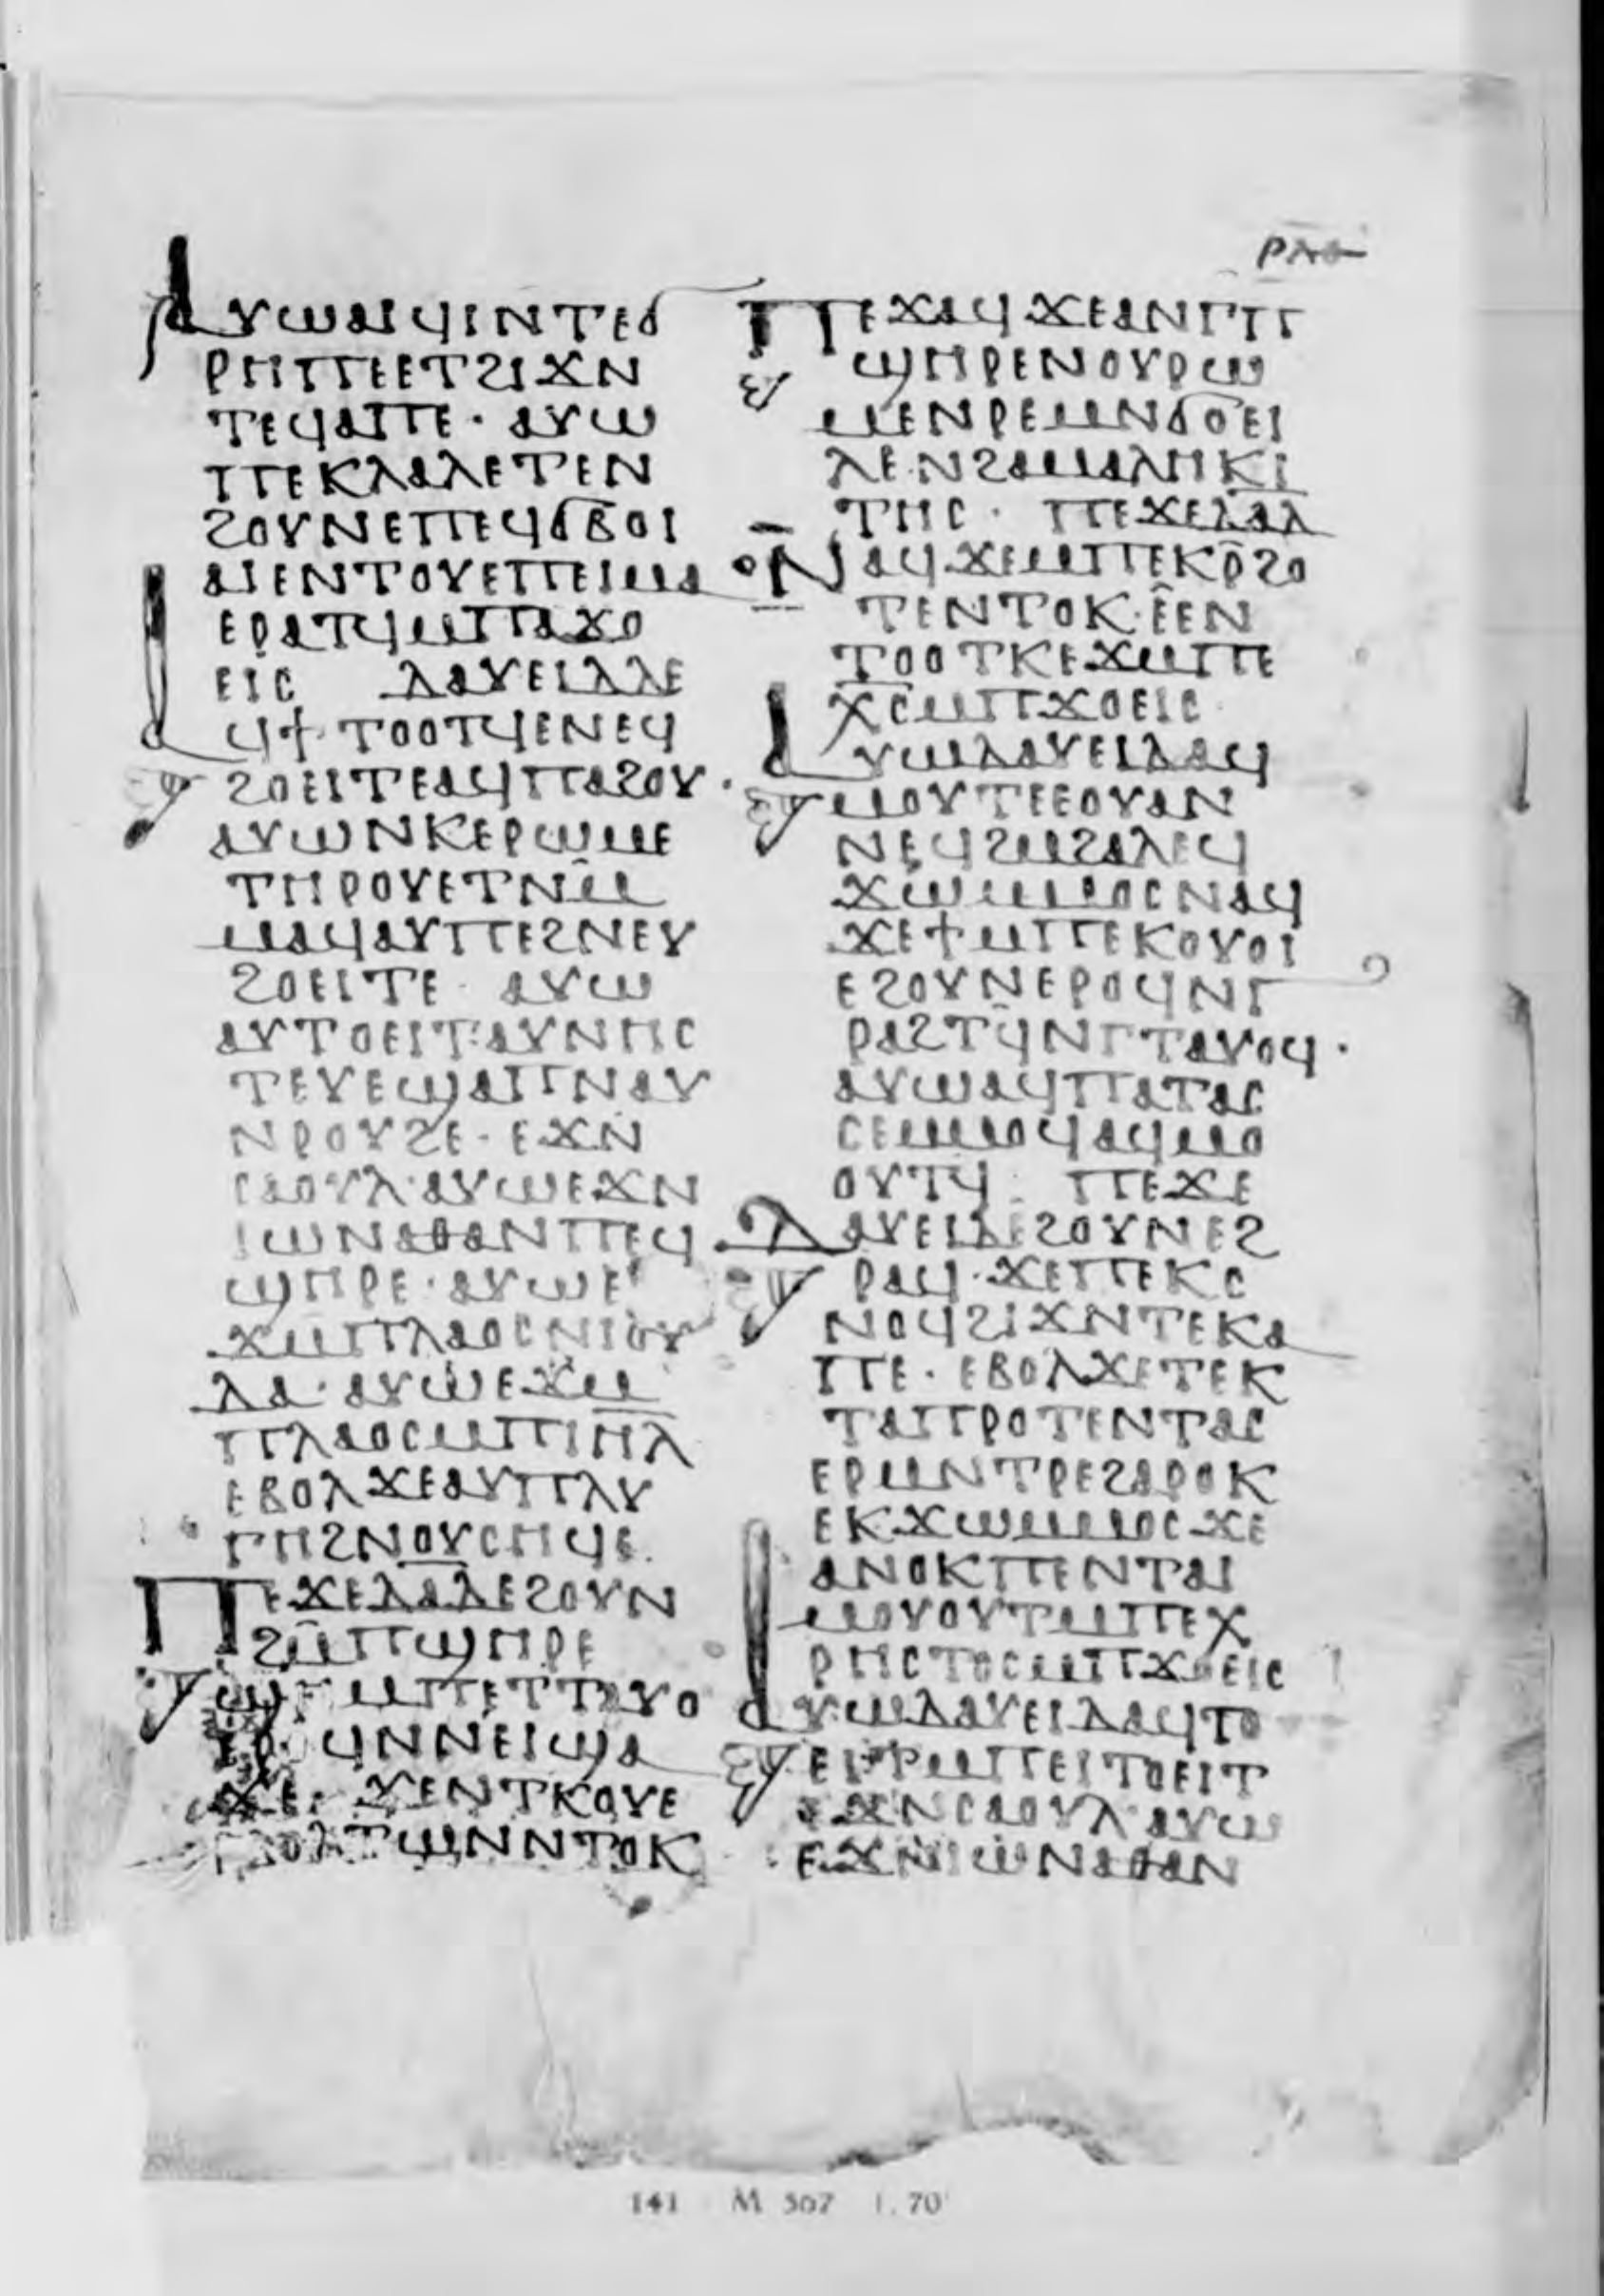 ⲣⲗⲑ
ⲁⲩⲱⲁⲓϥⲓⲛⲧⲉϭ
ⲣⲏⲡⲉⲉⲧϩⲓϫⲛ
ⲧⲉϥⲁⲡⲉ· ⲁⲩⲱ
ⲡⲉⲕⲗⲁⲗⲉⲧⲉⲛ
ϩⲟⲩⲛⲉⲡⲉϥϭⲃⲟⲓ
ⲁⲓⲉⲛⲧⲟⲩⲉⲡⲉⲓⲙⲁ
ⲉⲣⲁⲧϥⲙⲡⲁϫⲟ
ⲉⲓⲥ ⲇⲁⲩⲉⲓⲇⲇⲉ
ⲁϥϯ·ⲧⲟⲟⲧϥⲉⲛⲉϥ
ϩⲟⲉⲓⲧⲉⲁϥⲡⲁϩⲟⲩ·
ⲁⲩⲱⲛⲕⲉⲣⲱⲙⲉ
ⲧⲏⲣⲟⲩⲉⲧⲛⲙ̄
ⲙⲁϥⲁⲩⲡⲉϩⲛⲉⲩ
ϩⲟⲉⲓⲧⲉ· ⲁⲩⲱ
ⲁⲩⲧⲟⲉⲓⲧ·ⲁⲩⲛⲏⲥ
ⲧⲉⲩⲉϣⲁⲡⲛⲁⲩ
ⲛⲣⲟⲩϩⲉ· ⲉϫⲛ
ⲥⲁⲟⲩⲗ·ⲁⲩⲱⲉϫⲛ
ⲓⲱⲛⲁⲑⲁⲛⲡⲉϥ
ϣⲏⲣⲉ·ⲁⲩⲱⲉ
ϫⲙⲡⲗⲁⲟⲥⲛⲓⲟⲩ
ⲇⲁ·ⲁⲩⲱⲉϫⲙ
ⲡⲗⲁⲟⲥⲙⲡⲓⲏⲗ
ⲉⲃⲟⲗϫⲉⲁⲩⲡⲗⲩ
ⲅⲏϩⲛⲟⲩⲥⲏϥⲉ.
ⲡⲉϫⲉⲇⲁⲇⲉϩⲟⲩⲛ
ϩⲙ̄ⲡϣⲏⲣⲉ
ϣⲏⲙⲡⲉⲧⲧⲁⲩⲟ
ⲉⲣⲟϥⲛⲛⲉⲓϣⲁ
ϫⲉ· ϫⲉⲛⲧⲕⲟⲩⲉ
ⲃⲟⲗⲧⲱⲛⲛⲧⲟⲕ
ⲡⲉϫⲁϥϫⲉⲁⲛⲅⲡ
ϣⲏⲣⲉⲛⲟⲩⲣⲱ
ⲙⲉⲛⲣⲉⲙⲛϭⲟⲉⲓ
ⲗⲉ·ⲛϩⲁⲙⲁⲗⲏⲕⲓ
ⲧⲏⲥ· ⲡⲉϫⲉⲇⲁⲇ
ⲛⲁϥϫⲉⲙⲡⲉⲕⲣ̄ϩⲟ
ⲧⲉⲛⲧⲟⲕ·ⲉ̂ⲉⲛ
ⲧⲟⲟⲧⲕⲉϫⲙⲡⲉ
ⲭⲥⲙⲡϫⲟⲉⲓⲥ·
ⲁⲩⲱⲇⲁⲩⲉⲓⲇⲁϥ
ⲙⲟⲩⲧⲉⲉⲟⲩⲁⲛ
ⲛⲉϥϩⲙϩⲁⲗⲉϥ
ϫⲱⲙⲙⲟⲥⲛⲁϥ
ϫⲉϯⲙⲡⲉⲕⲟⲩⲟⲓ
ⲉϩⲟⲩⲛⲉⲣⲟϥⲛⲅ
ⲣⲁϩⲧϥ̄ⲛⲅⲧⲁⲩⲟϥ·
ⲁⲩⲱⲁϥⲡⲁⲧⲁⲥ
ⲥⲉⲙⲙⲟϥⲁϥⲙⲟ
ⲟⲩⲧϥ· ⲡⲉϫⲉ
ⲇⲁⲩⲉⲓⲇⲉϩⲟⲩⲛⲉϩ
ⲣⲁϥ·ϫⲉⲡⲉⲕⲥ
ⲛⲟϥϩⲓϫⲛⲧⲉⲕⲁ
ⲡⲉ· ⲉⲃⲟⲗϫⲉⲧⲉⲕ
ⲧⲁⲡⲣⲟⲧⲉⲛⲧⲁⲥ
ⲉⲣⲙⲛⲧⲣⲉϩⲁⲣⲟⲕ
ⲉⲕϫⲱⲙⲙⲟⲥϫⲉ
ⲁⲛⲟⲕⲡⲉⲛⲧⲁⲓ
ⲙⲟⲩⲟⲩⲧⲙⲡⲉⲭ
ⲣⲏⲥⲧⲟⲥⲙⲡϫⲟⲉⲓⲥ
ⲁⲩⲱⲇⲁⲩⲉⲓⲇⲁϥⲧⲟ
ⲉⲓⲧⲙⲡⲉⲓⲧⲟⲉⲓⲧ
ⲉϫⲛⲥⲁⲟⲩⲗ·ⲁⲩⲱ
ⲉϫⲛⲓⲱⲛⲁⲑⲁⲛ
141 M 567 f. 70